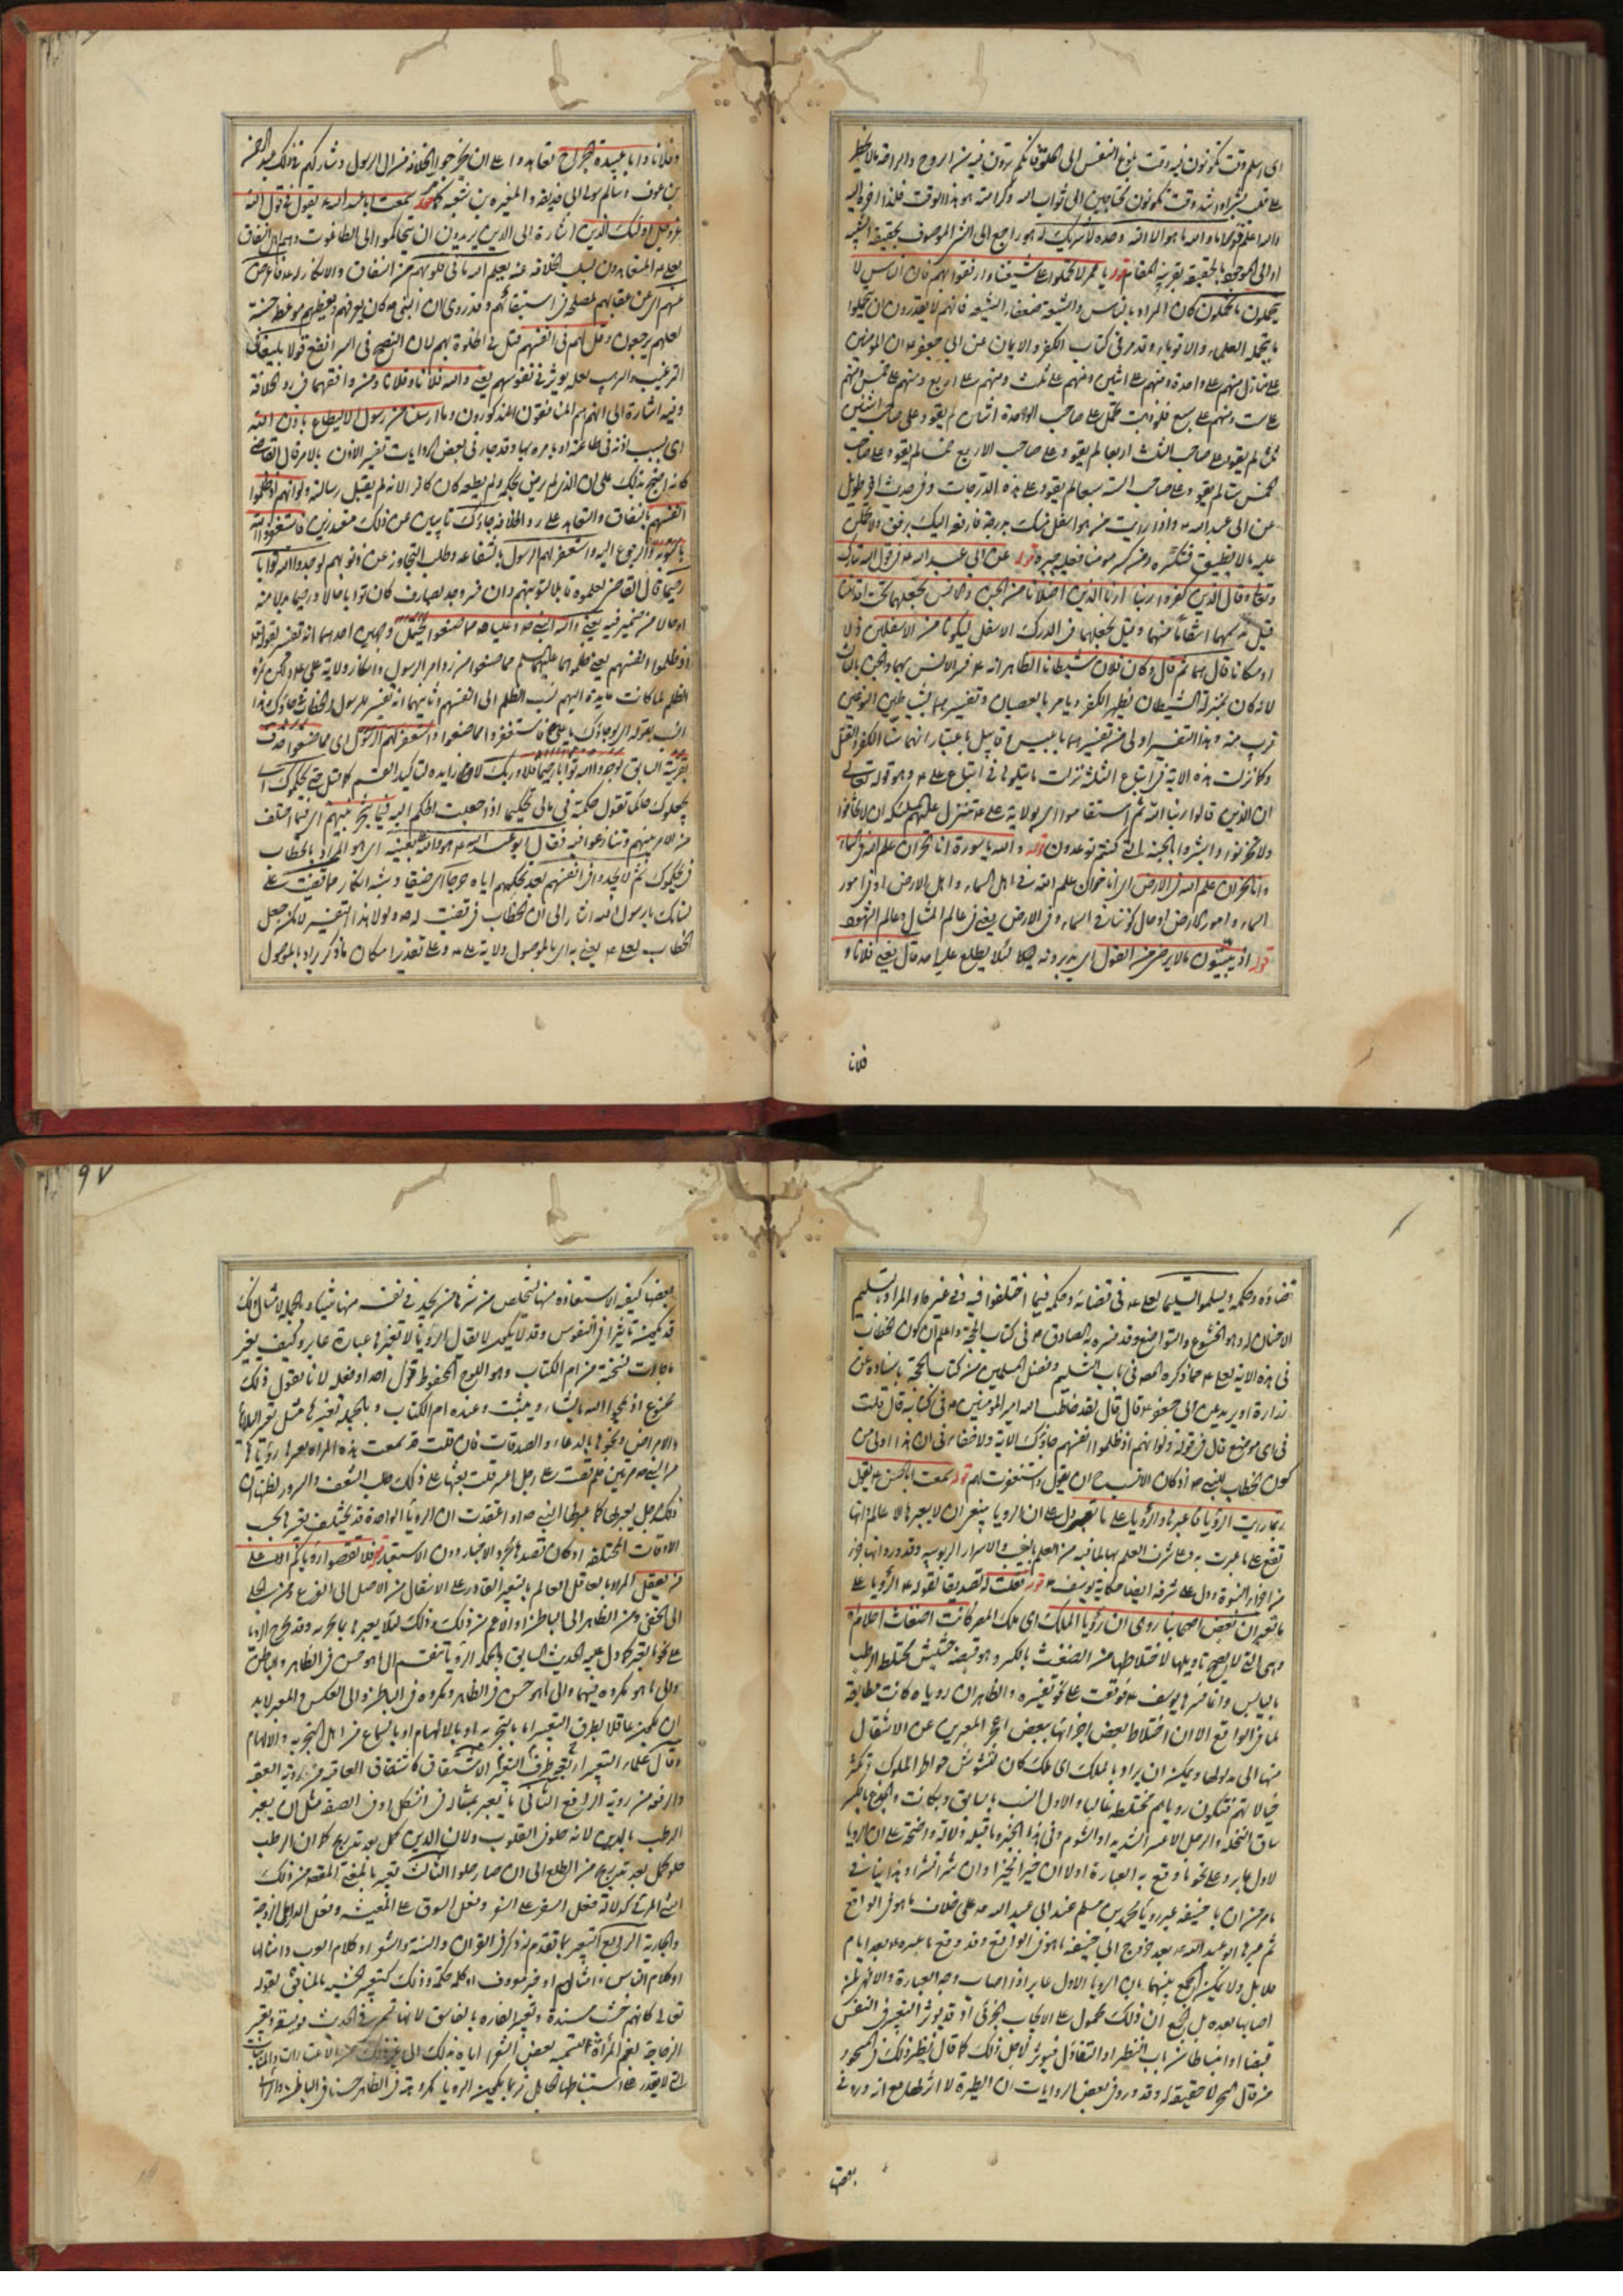 اى اسلم وقت تكونون فيه وقت بلوغ النفس الى الحلقوم فانكم ترون فيه من الروح والراحة
على قلب بشر او اشد وقت تكونون محتاجين الى ثواب الله وكرامته هو هذا الوقت
والله اعلم قوله اما والله ما هو الا الله وحده لا شريك له هو راجع الى
او الى الموجود بالحقيقة بقرينة المقام قوله يا عمر لا تحملوا على شيعتنا وارفقوا بهم فان الناس لا
يحتملون ما تحملون كان المراد بالناس والشيعة ضعفاء الشيعة فانهم لا يقدرون ان يتحملوا
ما يتحمله العلماء والاقوياء وقد مر فى كتاب الكفر والايمان عن ابى جعفر ع ان المؤمنين
على منازل منهم على واحدة ومنهم على اثنين ومنهم على ثلث ومنهم على اربع ومنهم على خمس ومنهم
على ست ومنهم على سبع فلو ذهبت تحمل على صاحب الواحدة اثنتين لم يقو وعلى صاحب اثنتين
ثلثا لم يقو وعلى صاحب الثلث اربعا لم يقو وعلى صاحب الاربع خمسا لم يقو وعلى صاحب
الخمس ستا لم يقو وعلى صاحب الستة سبعا لم يقو وعلى هذه الدرجات وفى حديث اخر طويل
عن ابى عبد الله ع واذا رايت من هو اسفل منك بدرجة فارفعه اليك برفق ولا تحملن
عليه ما لا يطيق فتكسره ومن كسر مؤمنا فعليه جبره قوله عن ابى عبد الله ع فى قول الله تبارك
وتعالى وقال الذين كفروا ربنا ارنا الذين اضلانا من الجن والانس نجعلهما تحت اقدامنا
قيل ندسهما انتقاما منهما وقيل نجعلهما فى الدرك الاسفل ليكونا من الاسفلين ذلا
او مكانا قال هما ثم قال وكان فلان شيطانا الظاهر انه ع فسر الانس بهما والجن بالثانى
لانه كان بمنزلة الشيطان يظهر الكفر ويامر بالعصيان وتفسيرهما بشياطين النوعين
قريب منه وهذا التفسير اولى من تفسيرهما بابليس وقابيل باعتبار انهما سنا الكفر والقتل
وكما نزلت هذه الاية فى اتباع الثلثة نزلت ما يتلوها فى اتباع على ع وهو قوله تعالى
ان الذين قالوا ربنا الله ثم استقاموا اى بولاية على ع تتنزل عليهم الملئكة ان لا تخافوا
ولا تحزنوا وابشروا بالجنة التى كنتم توعدون قوله والله يا سورة انا لخزان علم الله فى السماء
وانا لخزان علم الله فى الارض اى انا خزان علم الله فى اهل السماء واهل الارض او فى امور
السماء وامور الارض او حال كوننا فى السماء وفى الارض يعنى فى عالم المثال وعالم الشهود
قوله اذ يبيتون ما لا يرضى من القول اى يدبرونه ليلا لئلا يطلع عليه احد قال يعنى فلانا و
فلانا
وفلانا وابا عبيدة الجراح تعاهدوا على ان يخرجوا الخلافة من ال الرسول وشاركهم فى ذلك عبد الرحمن
بن عوف وسالم مولى ابى حذيفة والمغيرة بن شعبة قوله سمعت ابا عبد الله ع يقول فى قول الله
عز وجل اولئك الذين اشارة الى الذين يريدون ان يتحاكموا الى الطاغوت وهم اهل النفاق
منهم اى عن عقابهم لمصلحة فى استبقائهم وقد روى ان النبى ص كان يعرفهم ويعظهم موعظة حسنة
لعلهم يرجعون وقل لهم فى انفسهم قيل فى الخلوة بهم لان النصح فى السر انفع قولا بليغا فى
الترغيب والترهيب لعله يؤثر فى نفوسهم يعنى والله فلانا وفلانا ومن وافقهما فى رد الخلافة
وفيه اشارة الى انهم هم المنافقون المذكورون وما ارسلنا من رسول الا ليطاع باذن الله
اى بسبب اذنه فى طاعته او بامره بها وقد جاء فى بعض الروايات تفسير الاذن بالامر قال القاضى
كانه احتج بذلك على ان الذى لم يرض بحكمه ولم يطعه كان كافرا لانه لم يقبل رسالته ولو انهم اذ ظلموا
انفسهم بالنفاق والتعاهد على رد الخلافة جاؤك تائبين عن ذلك معتذرين فاستغفروا الله
بالتوبة والرجوع اليه واستغفر لهم الرسول بالشفاعة وطلب التجاوز عن ذنوبهم لوجدوا الله توابا
رحيما قال القاضى لعلموه قابلا لتوبتهم وان فسر وجد بصادف كان توابا حالا ورحيما بدلا منه
او حالا من ضمير فيه يعنى والله النبى ص وعليا ع مما صنعوا
اذ ظلموا انفسهم يعنى ظلموهما عليهما السلم مما صنعوا من رد امر الرسول وانكار ولاية على ع
الظلم لما كانت عايدة اليهم نسب الظلم الى انفسهم وثانيهما انه تفسير للرسول والخطاب فى جاؤك وهذا
انسب بقوله اى لو جاؤك يا على فاستغفروا مما صنعوا واستغفر لهم الرسول اى مما صنعوا حذف
بقرينة السابق لوجدوا الله توابا رحيما فلا وربك لا زايدة لتاكيد القسم كما قيل حتى يحكموك اى
يجعلوك حاكما تقول حكمته فى مالى تحكيما اذا جعلت الحكم اليه فيما شجر بينهم اى فيما اختلف
من الامر بينهم وتنازعوا فيه فقال ابو عبد الله ع هو والله على بعينه اى هو المراد بالخطاب
فى يحكموك ثم لا يجدوا فى انفسهم بعد تحكيمهم اياه حرجا اى ضيقا وشبه انكار مما قضيت على
لسانك يا رسول الله اشار الى ان الخطاب فى قضيت له ص ولولا هذا التفسير لامكن جعل
الخطاب لعلى ع يعنى به اى بالموصول ولاية على ع وعلى تقدير امكان ما ذكر يراد بالموصول
٩٧
قضاؤه وحكمه ويسلموا تسليما لعلى ع فى قضائه وحكمه فيما اختلفوا فيه وفى غيره والمراد بالتسليم
الاخبات له وهو الخشوع والتواضع وقد فسره به الصادق ع فى كتاب الحجة واعلم ان كون الخطاب
فى هذه الاية لعلى ع مما ذكره المصنف فى باب التسليم وفضل المسلمين من كتاب الحجة باسناده عن
زرارة او بريد عن ابى جعفر ع قال قال لقد خاطب الله امير المؤمنين ع فى كتابه قال قلت
فى اى موضع قال فى قوله ولو انهم اذ ظلموا انفسهم جاؤك الاية ولا خفاء فى ان هذا اولى من
كون الخطاب للنبى ص اذ كان الانسب ح ان يقول واستغفرت لهم قوله سمعت ابا الحسن ع يقول
ربما رايت الرؤيا فاعبرها والرؤيا على ما تعبر دل على ان الرويا ينبغى ان لا يعبرها الا عالم وانها
تقع على ما عبرت به وعلى شرف العلم بها لما فيه من العلم بالغيب والاسرار الربوبية وقد ورد انها جزء
من اجزاء النبوة ودل على شرفه ايضا حكاية يوسف ع قوله فقلت له تصديقا لقوله ع الرؤيا على
ما تعبر ان بعض اصحابنا روى ان رؤيا الملك اى ملك المصر كانت اضغاث احلام
وهى التى لا يصح تاويلها لاختلاطها من الضغث بالكسر وهو قبضة حشيش مختلط الرطب
باليابس وانما فسرها يوسف ع فوقعت على نحو تفسيره والظاهر ان رؤياه كانت مطابقة
لما فى الواقع الا ان اختلاط بعض اجزائها ببعض اعجز المعبرين عن الانتقال
منها الى مدلولها ويمكن ان يراد بالملك اى ملك كان لتشوش خواطر الملوك وتكثر
خيالاتهم فتكون رؤياهم مختلطة غالبا والاول انسب بالسابق
ساق النخلة والرجل الاعسر الشديد او الشوم وفى هذا الخبر وما قبله دلالة واضحة على ان الرويا
لاول عابر وعلى نحو ما وقع به العبارة اولا ان خيرا فخيرا وان شرا فشرا وهذا ينافى
ما مر من ان ابا حنيفة عبر رؤيا محمد بن مسلم عند ابى عبد الله ع على خلاف ما هو فى الواقع
ثم عبرها ابو عبد الله ع بعد خروج ابى حنيفة بما هو فى الواقع وقد وقع ما عبره ع بعد ايام
قلائل ولا يمكن الجمع بينهما بان الرويا لاول عابر اذا اصاب وجه العبارة والا فهى لمن
اصابها بعده بل الجمع ان ذلك محمول على الايجاب الجزئى اذ قد يوثر التعبير فى النفس
قبضا او انبساطا من باب التطير او التفاؤل فيوثر لاجل ذلك كما قال نظير ذلك فى السحر
من قال السحر لا حقيقة له وقد ورد فى بعض الروايات ان الطيرة لا اثر لها مع انه ورد فى
بعضها
بعضها كيفية الاستعاذة منها ليتخلص من شرها من يجد فى نفسه منها شيئا وبالجملة لامثال ذلك
قد يكون تاثيرا فى النفوس وقد لا يكون لا يقال الرؤيا لا تغيرها عبارة عابر وكيف يغير
ما جاءت نسخته من ام الكتاب وهو اللوح المحفوظ قول احد او فعله لانا نقول ذلك
ممنوع اذ يمحو الله ما يشاء ويثبت وعنده ام الكتاب وبالجملة تغيرها مثل تغير البلايا
والامراض ونحوها بالدعاء والصدقات فان قلت قد سمعت هذه المراة بعبرها رؤياها
من النبى ص مرتين فلم تقصت على رجل اعسر قلت بعثها على ذلك طلب الشغف والسرور لظنها ان
ذلك الرجل يعبرها كما عبرها النبى ص او اعتقدت ان الرؤيا الواحدة قد يختلف تعبيرها بحسب
الاوقات المختلفة او كان قصدها مجرد الاخبار دون الاستعبار قوله فلا تقصوا رؤياكم الا على
من يعقل المراد بالعاقل العالم بالتعبير القادر على الانتقال من الاصل الى الفرع ومن الجلى
الى الخفى ومن الظاهر الى الباطن او الاعم من ذلك وذلك لئلا يعبرها بما يحزنه وقد تخرج الرؤيا
على نحو ما يعبر كما دل عليه الحديث السابق وبالجملة الرؤيا تنقسم الى ما هو حسن فى الظاهر والباطن
والى ما هو مكروه فيهما والى ما هو حسن فى الظاهر ومكروه فى الباطن والى العكس والمعبر لا بد
ان يكون عاقلا بطرق التعبير اما بالتجربة او بالالهام او بالسماع من اهل التجربة والالهام
وقال علماء التعبير اربعة طرق التعبير الاشتقاق كاشتقاق العاقبة من رؤية العقبة
والرفعة من رؤية الرافع الثانى ما يعبر بمثاله فى الشكل او فى الصفة مثل ان يعبر
الرطب بالدين لانه حلو فى القلوب ولان الدين كمل بعد تدريج كما ان الرطب
حلو كمل بعد تدريج من الطلع الى ان صار حلوا الثالث تعبيره بالمعنى المقصود من ذلك
الشىء المرئى كدلالة فعل السفر على السفر وفعل السوق على المعيشة وفعل الدار على الزوجة
والجارية الرابع التعبير بما تقدم له ذكر فى القران والسنة والشعر او كلام العرب وامثالها
او كلام الناس وامثالهم او خبر معروف او كلمة حكمة وذلك كتعبير الخشبة بالمنافق لقوله
تعالى كانهم خشب مسندة وتعبير الفارة بالفاسق لانها تسمى فى الحديث فويسقة وتعبير
الزجاجة بفم المراة لتسميه بعض الشعراء اياه بذلك الى غير ذلك من الاعتبارات والمناسبات
التى لا يقدر على استنباطها كل احد فربما يكون الرويا مكروهة فى الظاهر حسنة فى الباطن